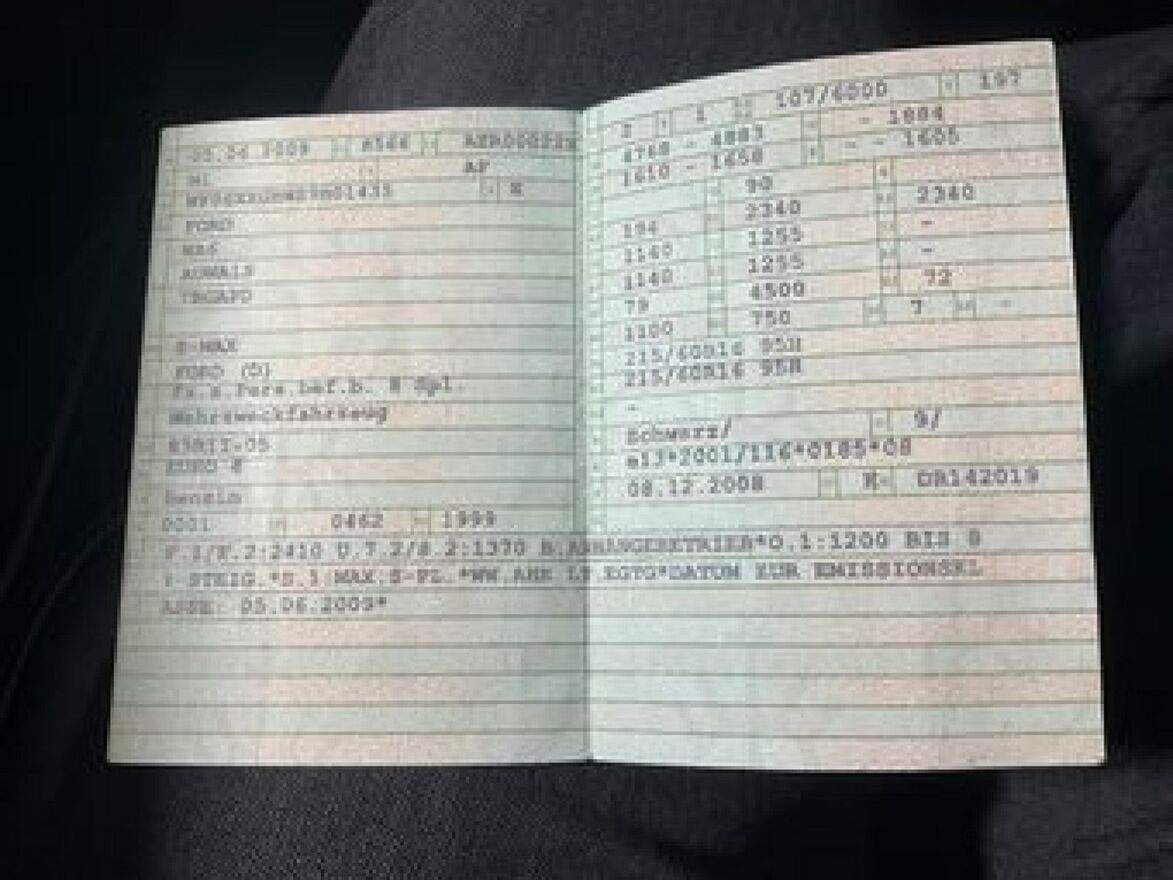 05.06.2009 8566
M1 AF
FORD
WA6
S-MAX
FORD (D)
Fz.z.Pers.bef.b. 8 Spl.
Mehrzweckfahrzeug
EURO 4
Benzin
0001 0462 1999
2 1 107/6000 107
4768 - 4883 - 1884
1610 - 1658 - - 1605
90
194 2340 2340
1140 1255 -
1140 1255 -
79 4500 72
1100 750 7 -
215/60R16 95H
215/60R16 95H
-
Schwarz/ 9/
e13*2001/116*0185*08
08.12.2008 K DR142019
F.1/F.2:2410 U.7.2/8.2:1370 B.ANHANGEBETRIEB*O.1:1200 BIS 8
STEIG.* MAX.S-FL.*WW.AHK LT.EGTG*DATUM ZUR EMISSIONSKL
ASSE: 05.06.2009*